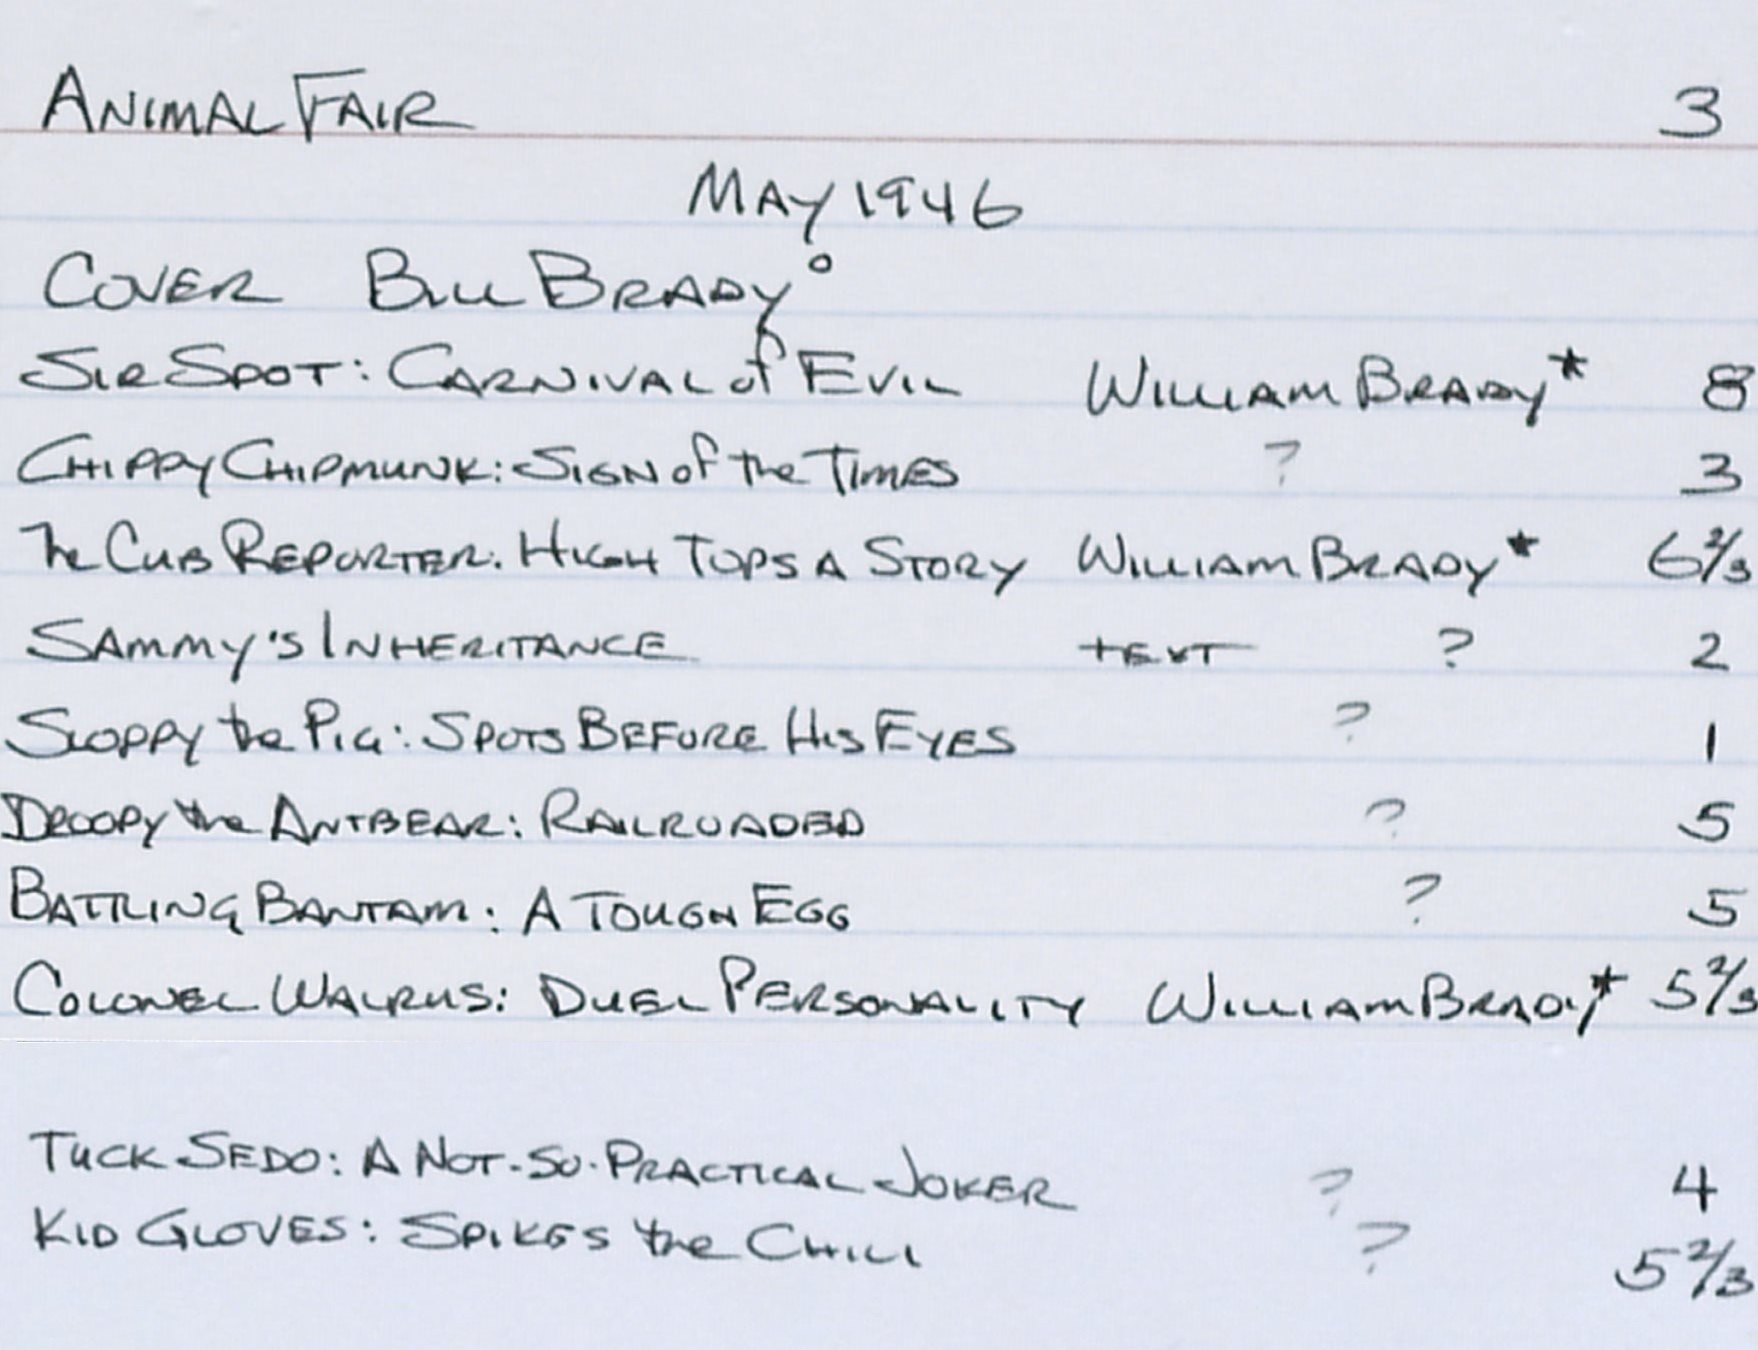 ANIMAL FAIR 3
MAY 1946
COVER BILL BRADY°
SIR SPOT: CARNIVAL of EVIL WILLIAM BRADY* 8
CHIPPY CHIPMUNK: SIGN of the TIMES ? 3
The CUB REPORTER: HIGH TOPS A STORY WILLIAM BRADY* 6 2/3
SAMMY'S INHERITANCE TEXT ? 2
SLOPPY the PIG: SPOTS BEFORE HIS EYES ? 1
DROOPY the ANTBEAR: RAILROADED ? 5
BATTLING BANTAM: A TOUGH EGG ? 5
COLONEL WALRUS: DUEL PERSONALITY WILLIAM BRADY* 5 2/3
TUCK SEDO: A NOT-SO-PRACTICAL JOKER ? 4
KID GLOVES: SPIKES the CHILL ? 5 2/3